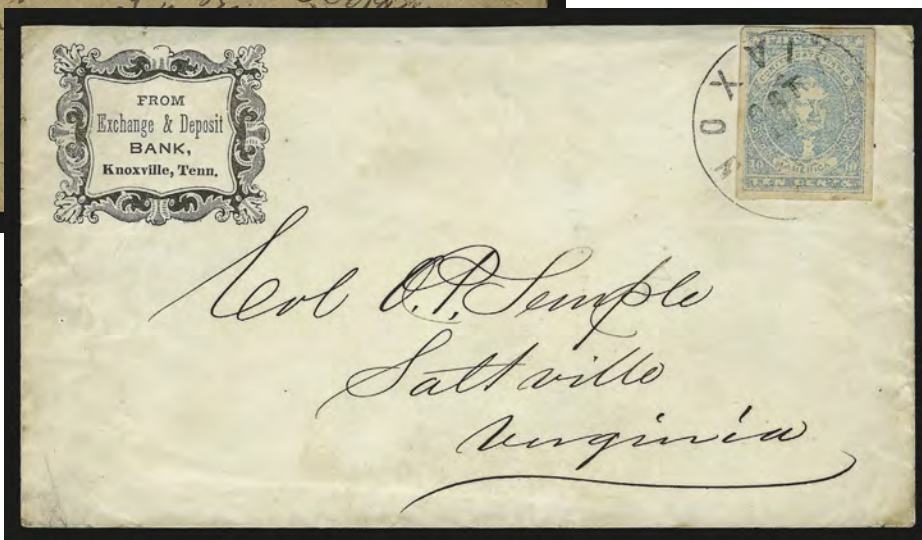 FROM
Exchange & Deposit
BANK,
Knoxville, Tenn.
NOXVI
OCT
TEN CENTS
Col O.P. Semple
Saltville
Virginia